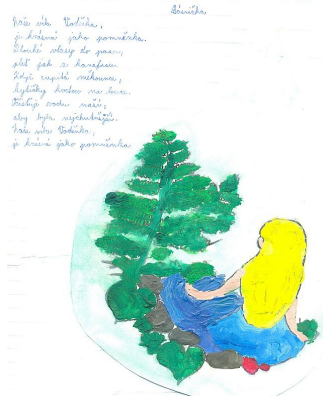 Básnička
Naše víla Vodička,
je krásná jako pomněnka.
Dlouhé vlasy do pasu,
pleť jak z
Když cupitá měkounce,
kytičky kvetou na louce.
vodu naší,
aby byla nejchutnější.
Naše víla Vodička,
je krásná jako pomněnka